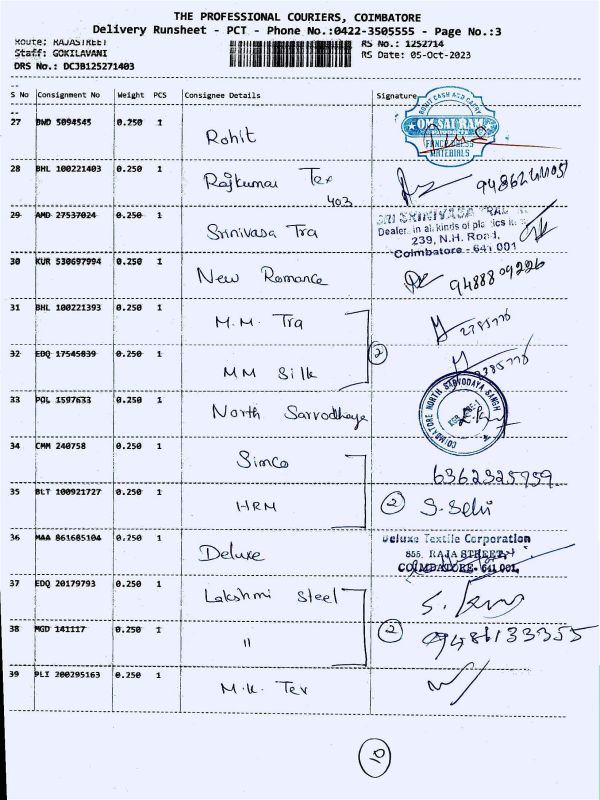 THE PROFESSIONAL COURIERS, COIMBATORE
Delivery Runsheet - PCT - Phone No.:0422-3505555 - Page No.:3
Route: RAJASTREET RS No.: 1252714
Staff: GOKILAVANI RS Date: 05-Oct-2023
DRS No.: DCJB125271403
S No Consignment No Weight PCS Consignee Details Signature
27 BWD 5094545 0.250 1 Rohit
ROHIT CASH AND CARRY
OM SAI RAM
FANCY DRESS
MATERIALS
28 BHL 100221403 0.250 1 Rajkumar Tex
403
29 AMD 27537024 0.250 1 Srinivasa Tra
SRI SRINIVASA
Dealer in all kinds of
239, N.H. Road,
Coimbatore - 641 001
30 KUR 530697994 0.250 1 New Romance 9488809226
31 BHL 100221393 0.250 1 M.M. Tra
32 EDQ 17545839 0.250 1 MM Silk
2
33 POL 1597633 0.250 1 North Sarvodhaya
COIMBATORE NORTH SARVODAYA SANGH
34 CMM 240758 0.250 1 Simco 6362325959
35 BLT 100921727 0.250 1 HRM 2 S. Selvi
36 MAA 861685104 0.250 1 Deluxe
Deluxe Textile Corporation
855, RAJA STREET
COIMBATORE- 641 001
37 EDQ 20179793 0.250 1 Lakshmi Steel
38 MGD 141117 0.250 1 " 2 9486133355
39 PLI 200295163 0.250 1 M.K. Tex
10